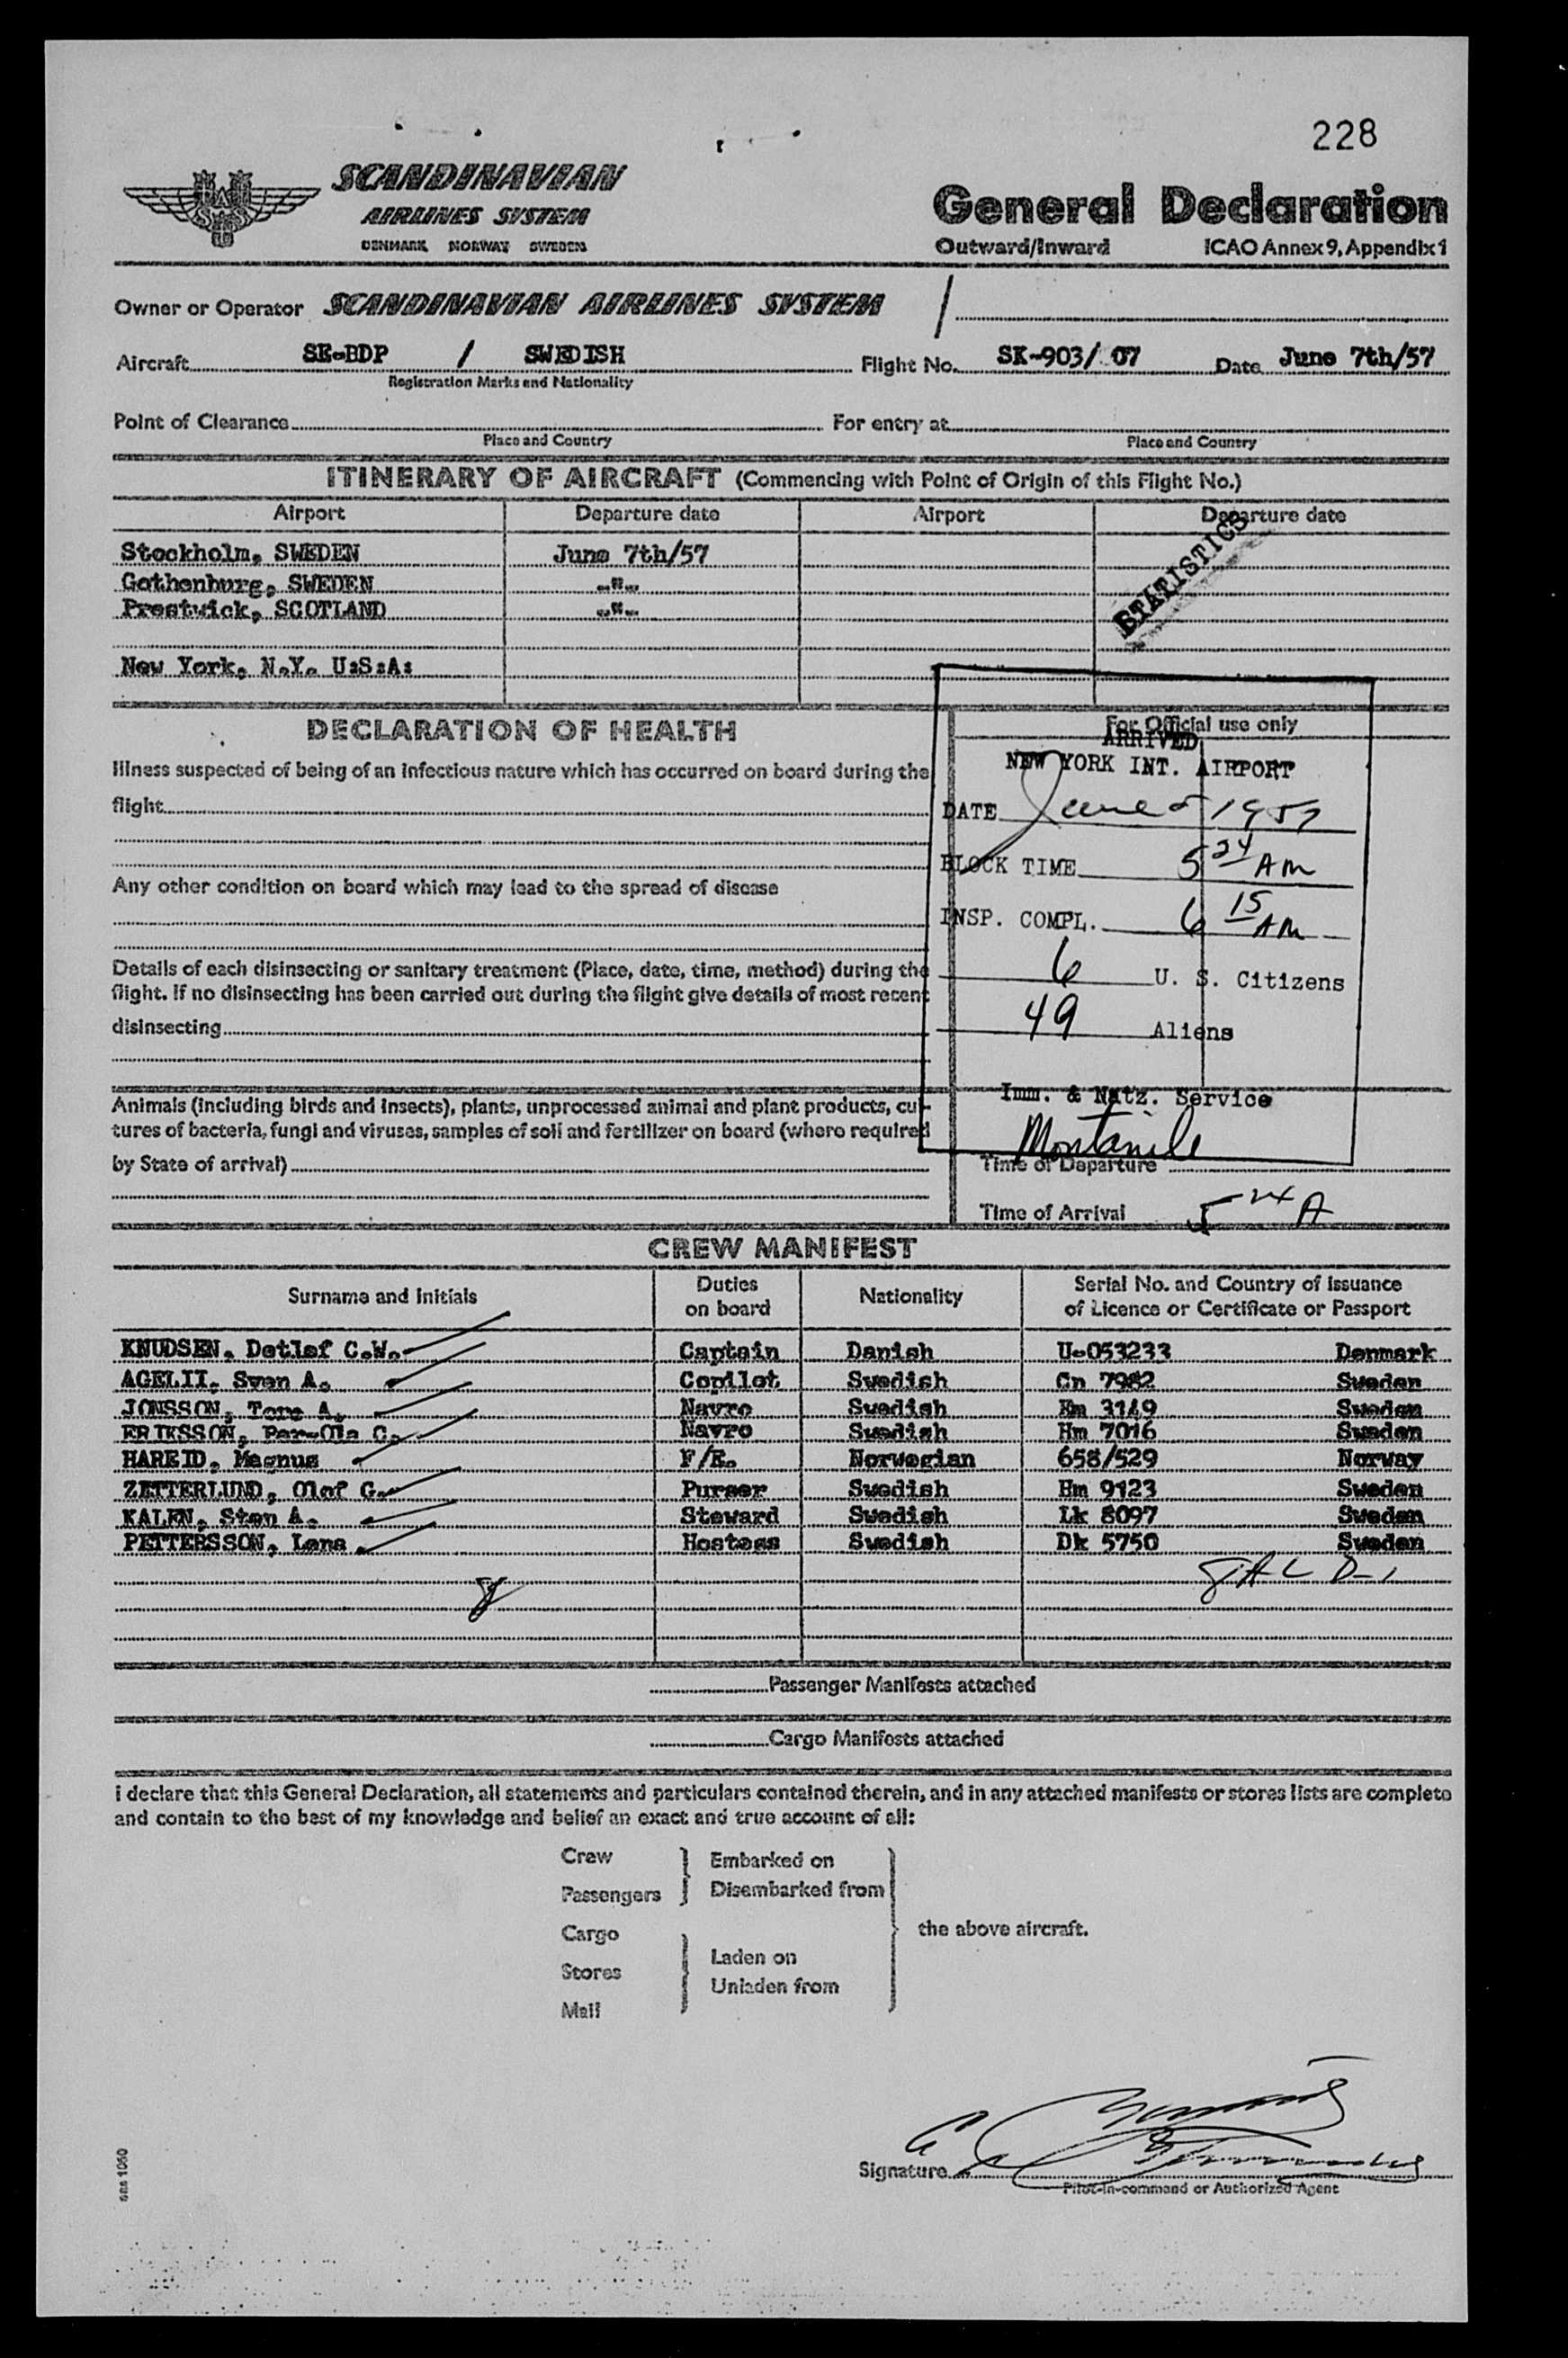 228
SCANDINAVIAN
AIRLINES SYSTEM
DENMARK NORWAY SWEDEN
General Declaration
Outward/Inward ICAO Annex 9, Appendix 1
Owner or Operator SCANDINAVIAN AIRLINES SYSTEM /
Aircraft SE-BDP / SWEDISH Flight No. SK-903/ 07 Date June 7th/57
Registration Marks and Nationality
Point of Clearance For entry at
Place and Country Place and Country
ITINERARY OF AIRCRAFT (Commencing with Point of Origin of this Flight No.)
Airport Departure date Airport Departure date
STATISTICS
Stockholm, SWEDEN June 7th/57
Gothenburg, SWEDEN -"-
Prestwick, SCOTLAND -"-
New York, N.Y. U:S:A:
DECLARATION OF HEALTH
Illness suspected of being of an infectious nature which has occurred on board during the
flight
Any other condition on board which may lead to the spread of disease
Details of each disinsecting or sanitary treatment (Place, date, time, method) during the
flight. If no disinsecting has been carried out during the flight give details of most recent
disinsecting
Animals (including birds and insects), plants, unprocessed animal and plant products, cul-
tures of bacteria, fungi and viruses, samples of soil and fertilizer on board (where required
by State of arrival)
For Official use only
ARRIVED
NEW YORK INT. AIRPORT
DATE June 8 1957
BLOCK TIME 5 24 AM
INSP. COMPL. 6 15 AM
6 U. S. Citizens
49 Aliens
Imm. & Natz. Service
Time of Departure
Time of Arrival 5 24 A
CREW MANIFEST
Surname and Initials Duties on board Nationality Serial No. and Country of Issuance of Licence or Certificate or Passport
KNUDSEN, Detlef C.W. Captain Danish U-053233 Denmark
AGELII, Sven A. Copilot Swedish Cn 7982 Sweden
JONSSON, Tore A. Navro Swedish Hm 3149 Sweden
ERIKSSON, Per-Ola C. Navro Swedish Hm 7016 Sweden
HAREID, Magnus F/E. Norwegian 658/529 Norway
ZETTERLUND, Olof G. Purser Swedish Hm 9123 Sweden
KALEN, Sten A. Steward Swedish Lk 8097 Sweden
PETTERSSON, Lena Hostess Swedish Dk 5750 Sweden
8
Passenger Manifests attached
Cargo Manifests attached
I declare that this General Declaration, all statements and particulars contained therein, and in any attached manifests or stores lists are complete
and contain to the best of my knowledge and belief an exact and true account of all:
Crew
Passengers
Embarked on
Disembarked from
Cargo
Stores
Mail
Laden on
Unladen from
the above aircraft.
Signature
Pilot-in-command or Authorized Agent
sas 1050